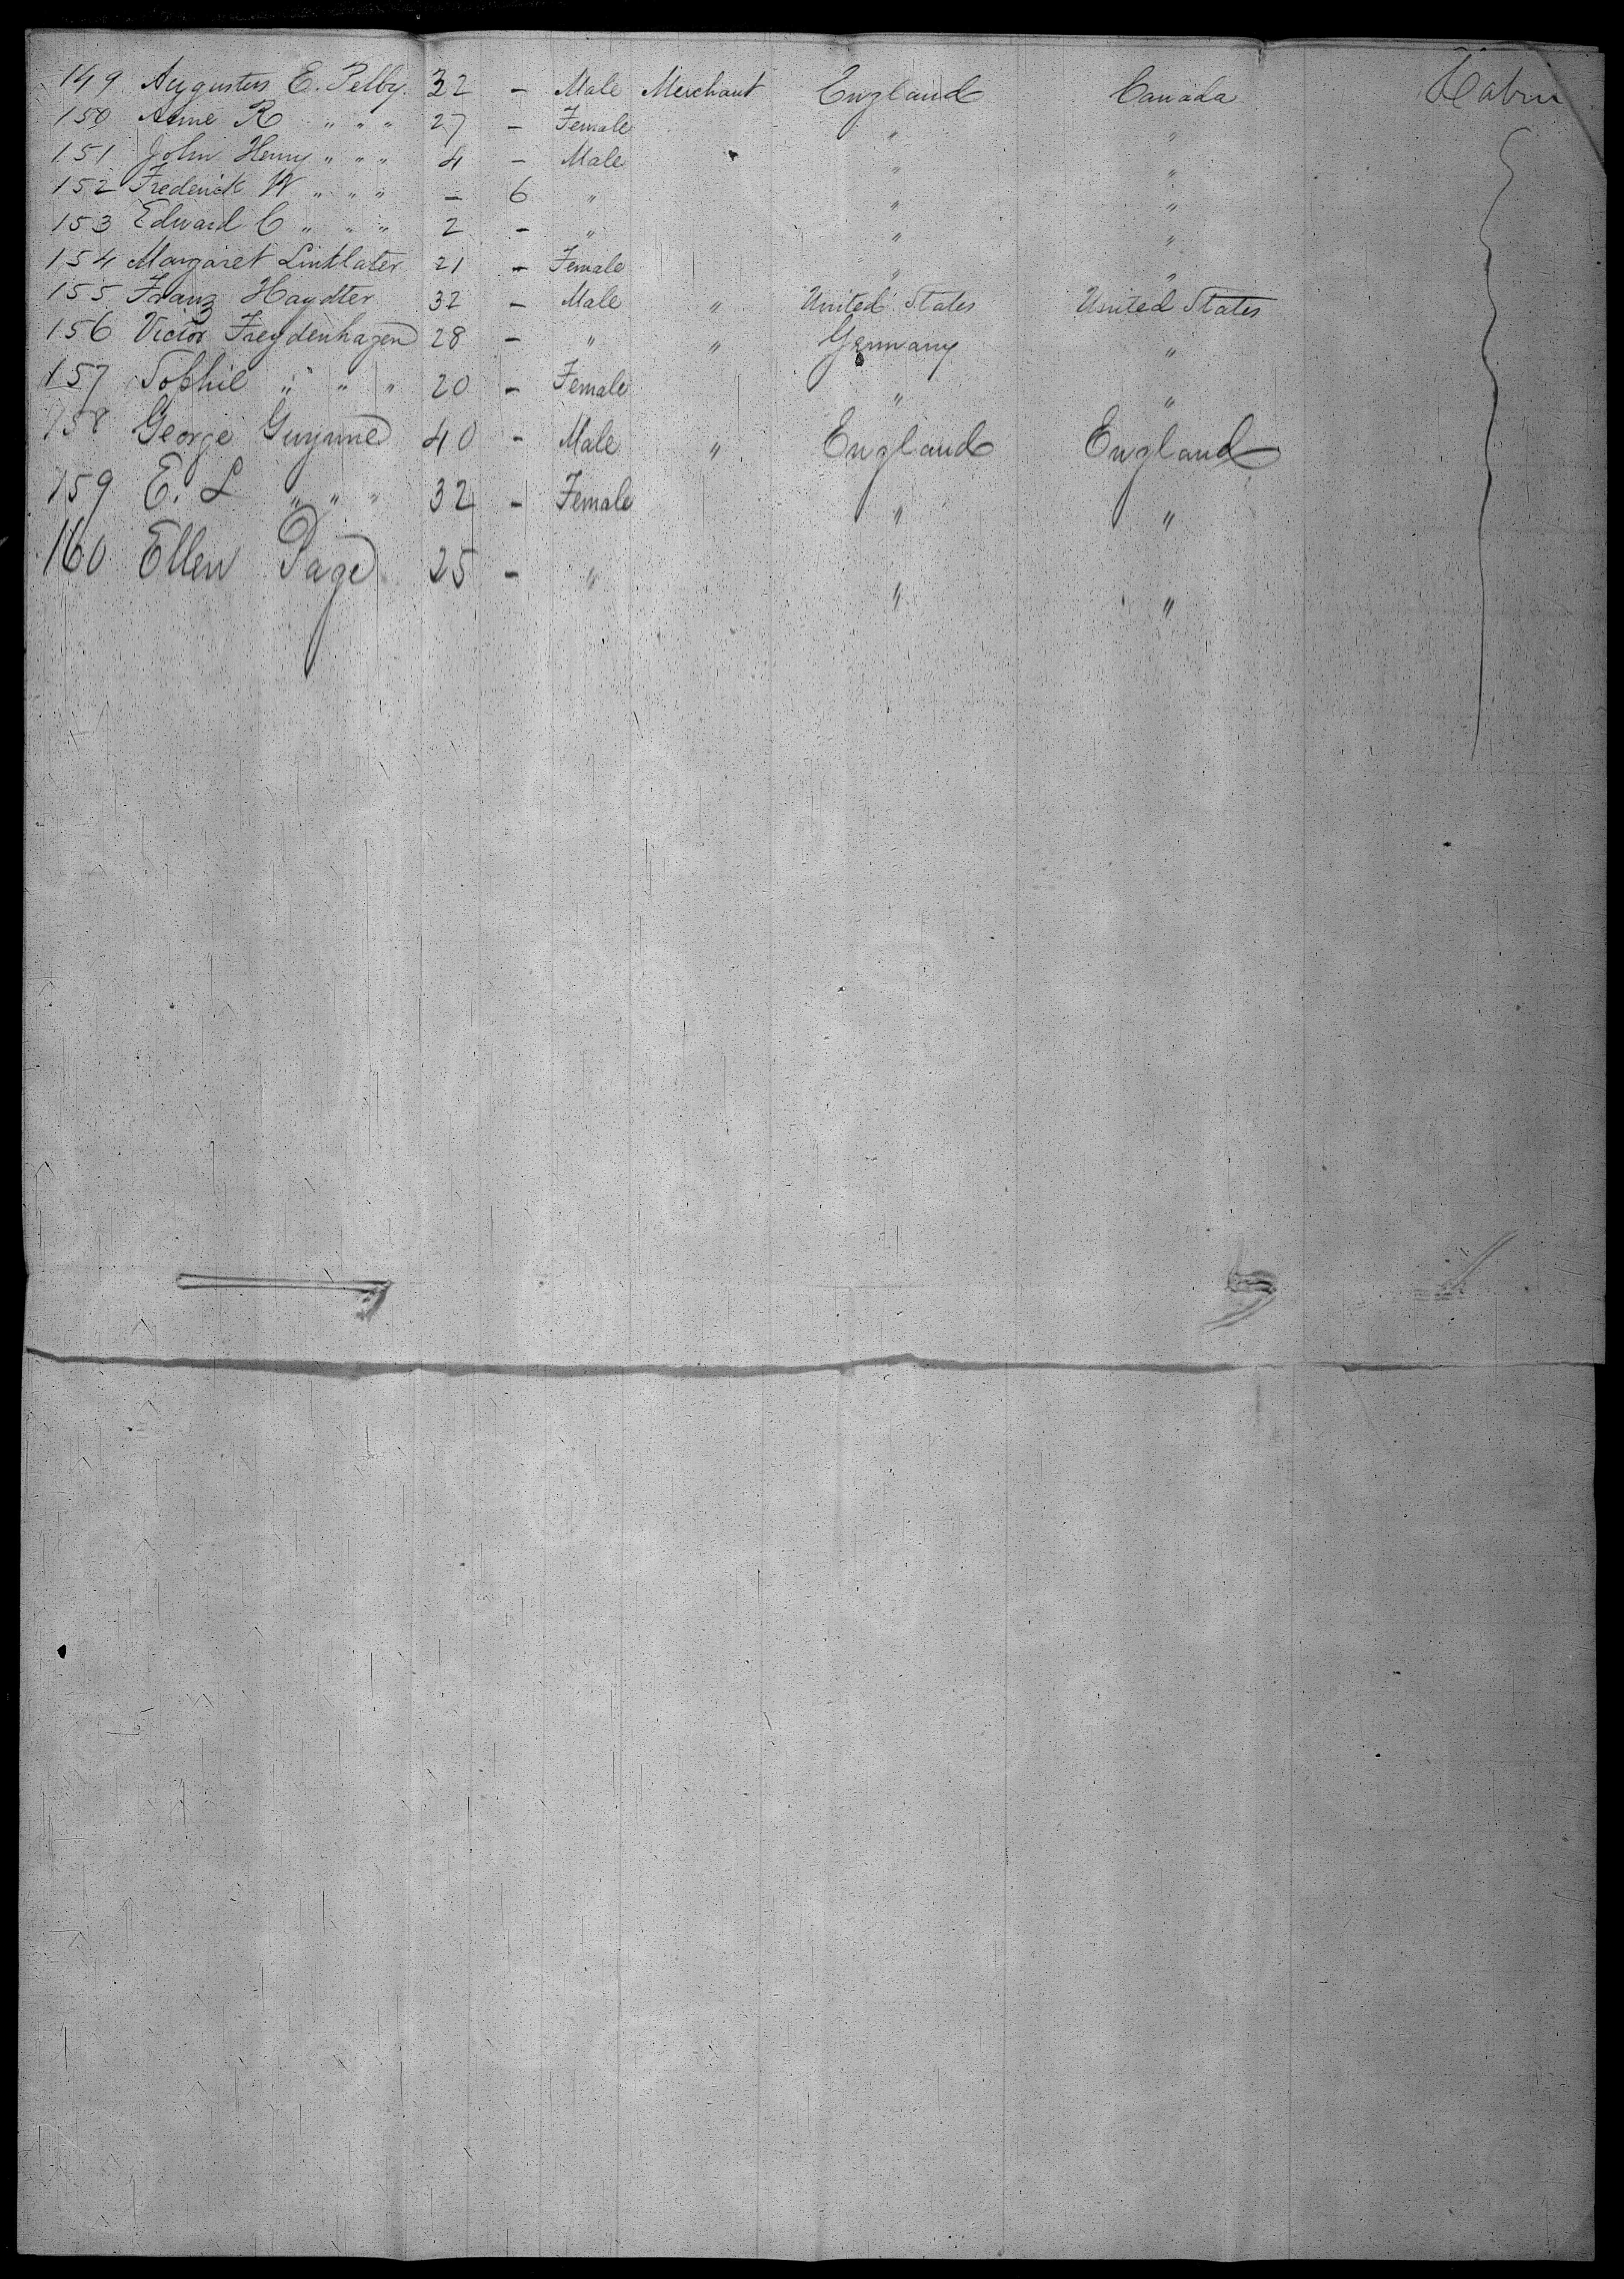 149 Augustus E. Pelby. 32 - Male Merchant England Canada Cabin
150 Anne R " " " 27 - Female " "
151 John Henry " " " 4 - Male " "
152 Frederick W " " " - 6 " " "
153 Edward C " " " 2 - " " "
154 Margaret Linklater 21 - Female " "
155 Franz Haydter 32 - Male " United States United States
156 Victor Freydenhagen 28 - " " Germany "
157 Sophie " " " 20 - Female " "
158 George Gwynne 40 - Male " England England
159 E. L " " " 32 - Female " "
160 Ellen Page 25 - " " "